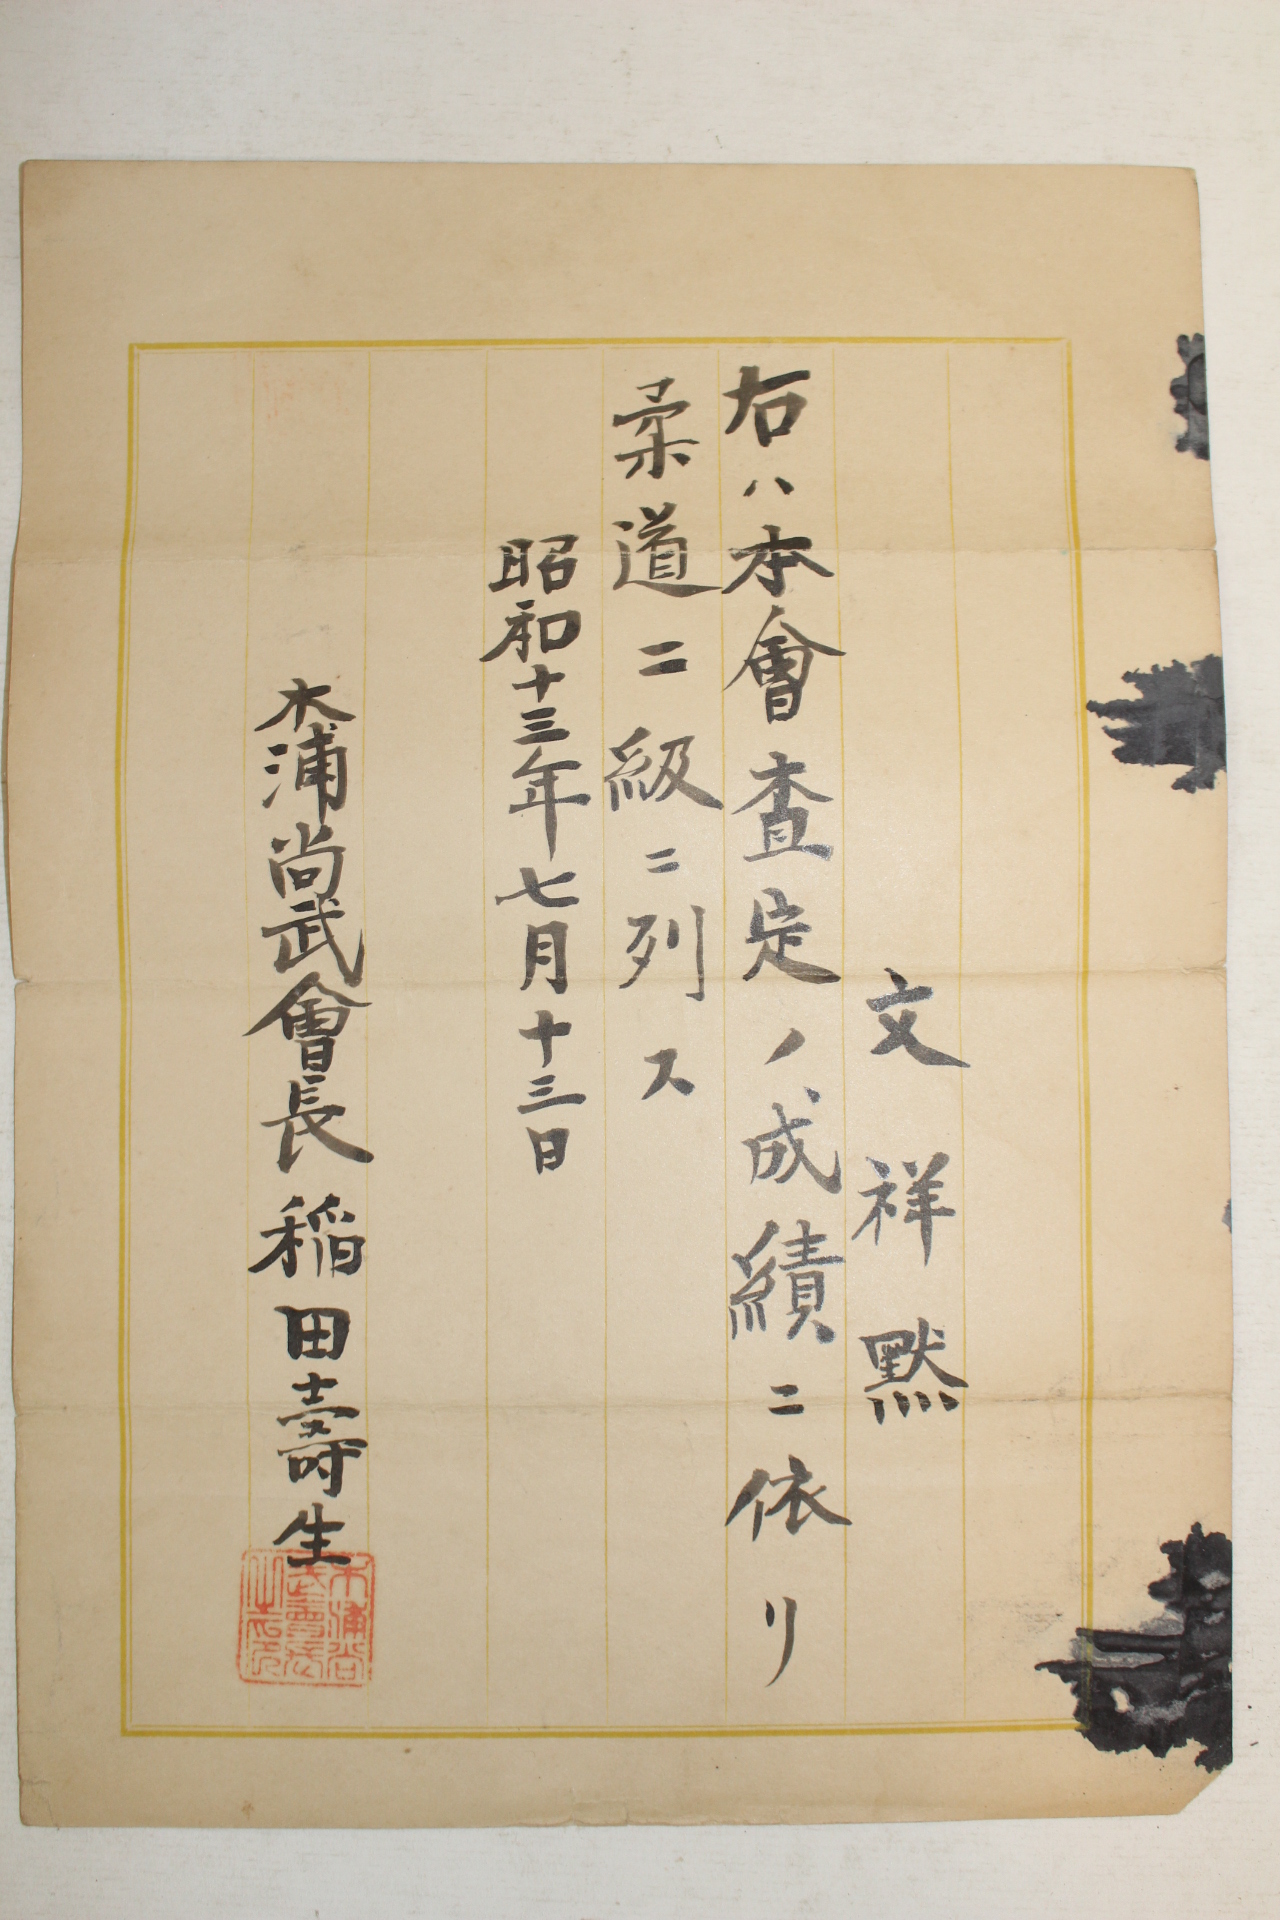 文祥黙
右ハ本會査定ノ成績ニ依リ
柔道二級ニ列ス
昭和十三年七月十三日
木浦尚武會長 稲田壽生
木浦尚
武會長
之印